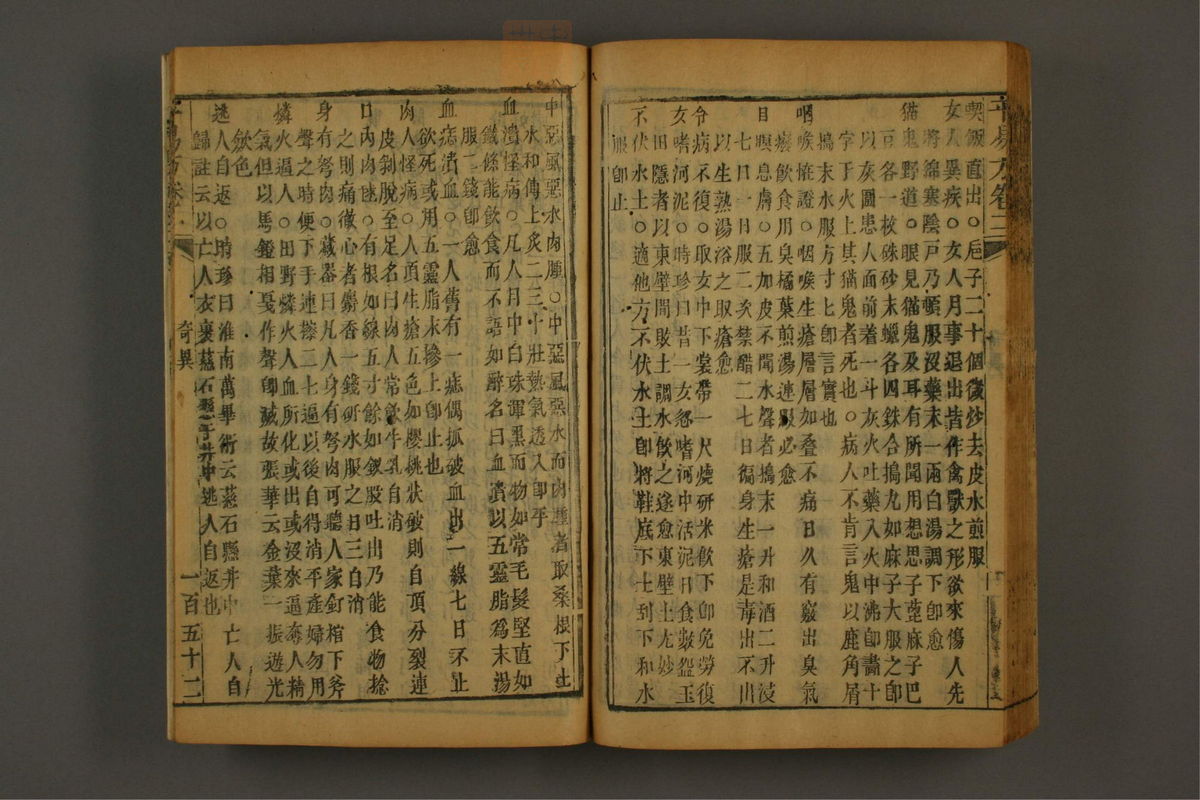 喫飯直出○巵子二十個微炒去皮水煎服
女人異疾○女人月事退出皆作禽獸之形欲來傷人先
將綿塞陰戶乃頓服沒藥末一兩白湯調下卽愈
猫鬼野道○眼見猫鬼及耳有所聞用想思子蓖麻子巴
豆各一枚硃砂末蠟各四銖合搗丸如麻子大服之卽
以灰圍患人面前着一斗灰火吐藥入火中沸卽畵十
字于火上其猫鬼者死也○病人不肯言鬼以鹿角屑
搗末水服方寸匕卽言實也
咽喉怪證○咽喉生瘡層層如叠不痛日久有竅出臭氣
癈飲食用臭橘葉煎湯連服必愈
目瞑息膚○五加皮不聞水聲者搗末一升和酒二升浸
七日一日服二次禁醋二七日徧身生瘡是毒出不出
以生熟湯浴之取瘡愈
令病不復○取女中下裳帶一尺燒研米飲下卽免勞復
女嗜河泥○時珍曰昔一女忽嗜河中活泥日食數盌玉
田隱者以東壁間敗土調水飲之遂愈東壁土尤妙
不伏水土○適他方不伏水土卽將鞋底下土刮下和水
服卽止
中惡風惡水肉腫○中惡風惡水而肉腫者取桑根下土
水和傅上炙二三十壯熱氣透入卽平
血潰怪病○凡人目中白珠渾黑而物如常毛髮堅直如
鐵條能飲食而不語如醉名曰血潰以五靈脂爲末湯
服二錢卽愈
血痣潰血○一人舊有一痣偶抓破血出一線七日不止
欲死或用五靈脂末摻上卽止也
肉人怪病○人頂生瘡五色如櫻桃狀破則自頂分裂連
皮剝脫至足名曰肉人常飲牛乳自消
口內肉毬○有根如線五寸餘如釵股吐出乃能食物捻
之則痛徹心者麝香一錢研水服之日三自消
身有弩肉○藏器曰凡人身有弩肉可聽人家釘棺下斧
聲之時便下手速擦二七遍以後自得消平產婦勿用
燐火逼人○田野燐火人血所化或出或沒來逼奪人精
氣但以馬鐙相戛作聲卽滅故張華云金葉一振遊光
歛色
逃人自返○時珍曰淮南萬畢術云慈石懸井中亡人自
歸註云以亡人衣裹慈石懸于井中逃人自返也
奇異
一百五十二